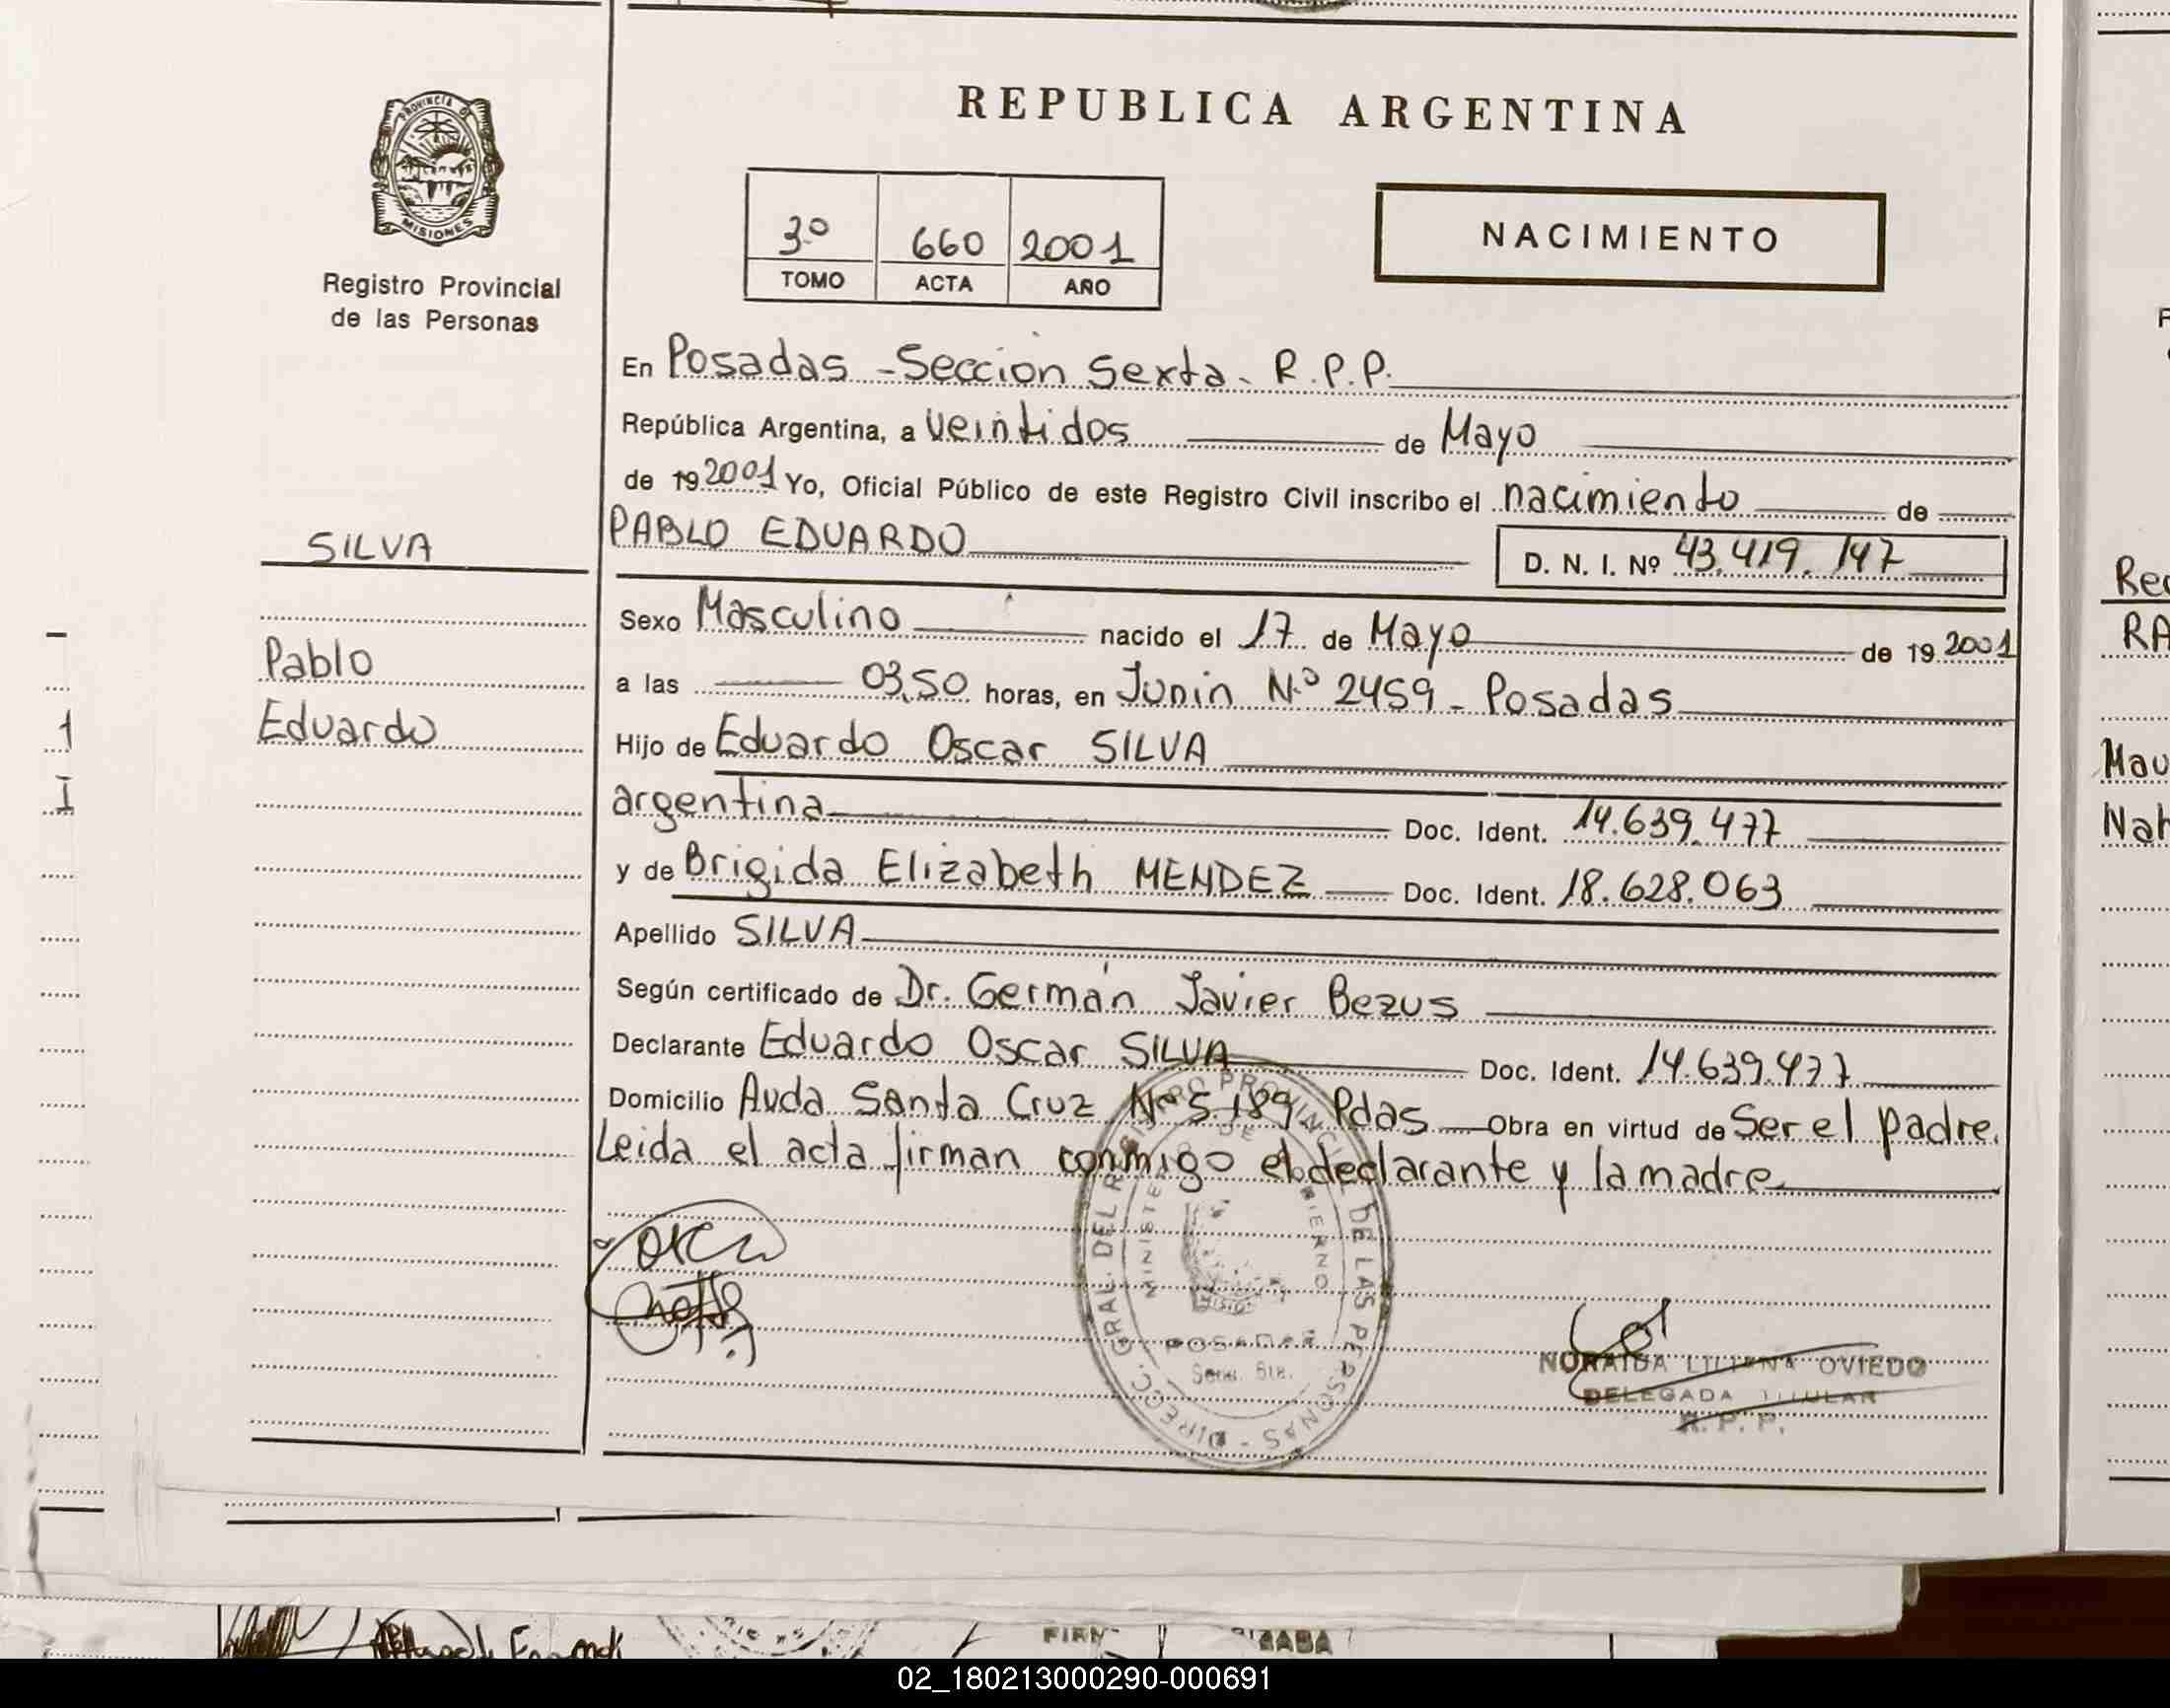 REPUBLICA ARGENTINA
PROVINCIA D
MISIONES
Registro Provincial
de las Personas
3º 660 2001
TOMO ACTA AÑO
NACIMIENTO
En Posadas - Sección Sexta - R.P.P.
República Argentina, a veintidos de Mayo
de 19 2001 Yo, Oficial Público de este Registro Civil inscribo el nacimiento de
SILVA
PABLO EDUARDO
D. N. I. Nº 43.419.147
Sexo Masculino nacido el 17 de Mayo de 19 2001
Pablo
a las 03,50 horas, en Junin N.º 2459 - Posadas
Eduardo
Hijo de Eduardo Oscar SILVA
argentina Doc. Ident. 14.639.477
y de Brigida Elizabeth MENDEZ Doc. Ident. 18.628.063
Apellido SILVA
Según certificado de Dr. Germán Javier Bezus
Declarante Eduardo Oscar SILVA Doc. Ident. 14.639.477
Domicilio Avda Santa Cruz Nº 5.189 Pdas Obra en virtud de Ser el padre.
Leida el acta firman conmigo el declarante y la madre
DIRECC. GRAL. DEL REGISTRO PROVINCIAL DE LAS PERSONAS
MINISTERIO DE GOBIERNO
POSADAS
NORAIDA LILIANA OVIEDO
DELEGADA TITULAR
R. P. P.
02_180213000290-000691